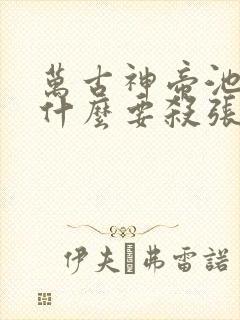 萬古神帝池
什麼要殺張
伊夫 弗雷諾